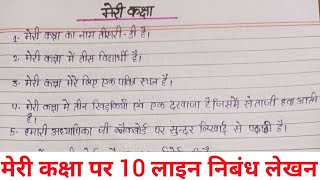 मेरी कक्षा
1- मेरी कक्षा का नाम तीसरी-डी है।
2- मेरी कक्षा में तीस विद्यार्थी हैं।
3- मेरी कक्षा मेरे लिए एक पवित्र स्थान है।
4- मेरी कक्षा में तीन खिड़कियाँ एवं एक दरवाजा है जिसमें से ताजी हवा आती है।
5- हमारी अध्यापिका जी ब्लैकबोर्ड पर सुन्दर लिखाई से पढ़ाती हैं।
मेरी कक्षा पर 10 लाइन निबंध लेखन